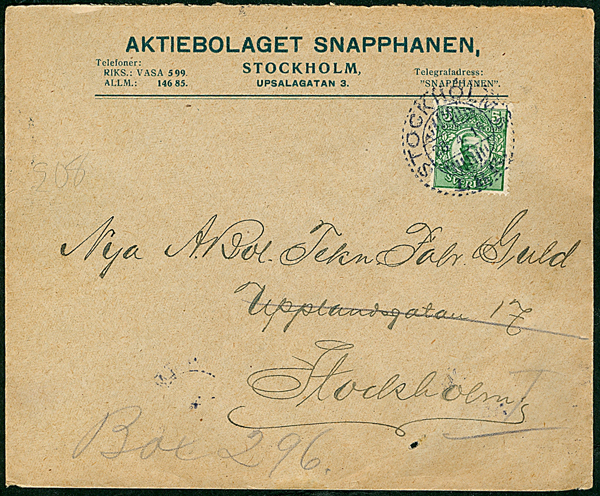 AKTIEBOLAGET SNAPPHANEN,
STOCKHOLM,
UPSALAGATAN 3.
Telefoner:
RIKS.: VASA 599.
ALLM.: 146 85.
Telegrafadress:
"SNAPPHANEN".
STOCKHOLM
5
208
Nya A.Bol. Tekn. Fabr. Guld
Upplandsgatan 17
Stockholm
I
Box 296.